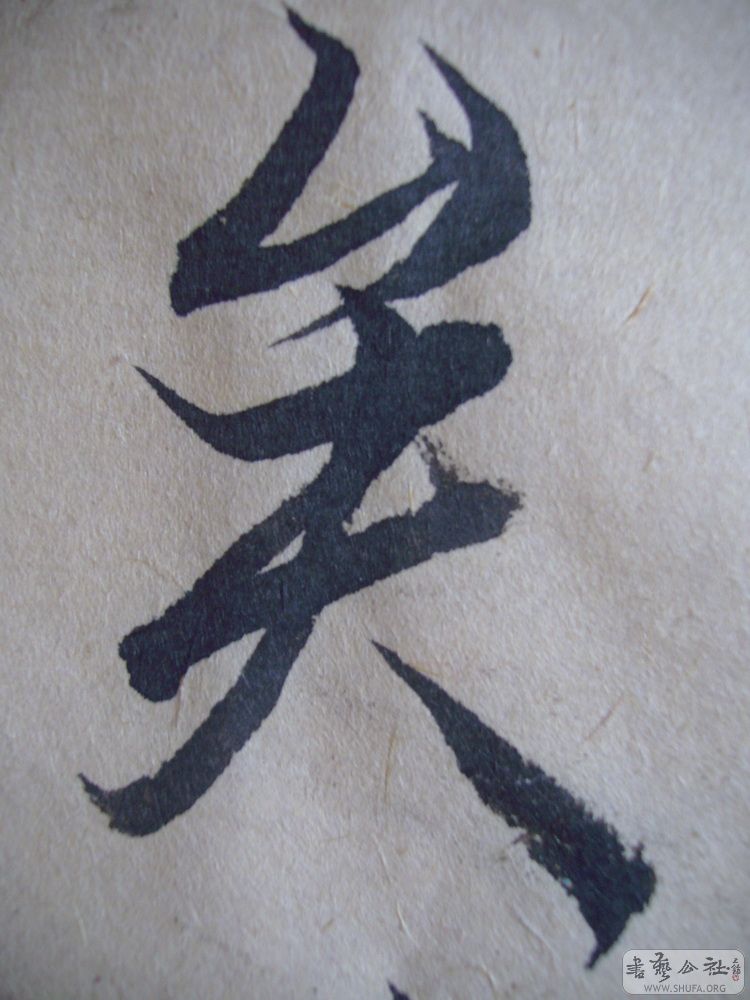 矣
書藝公社
WWW.SHUFA.ORG